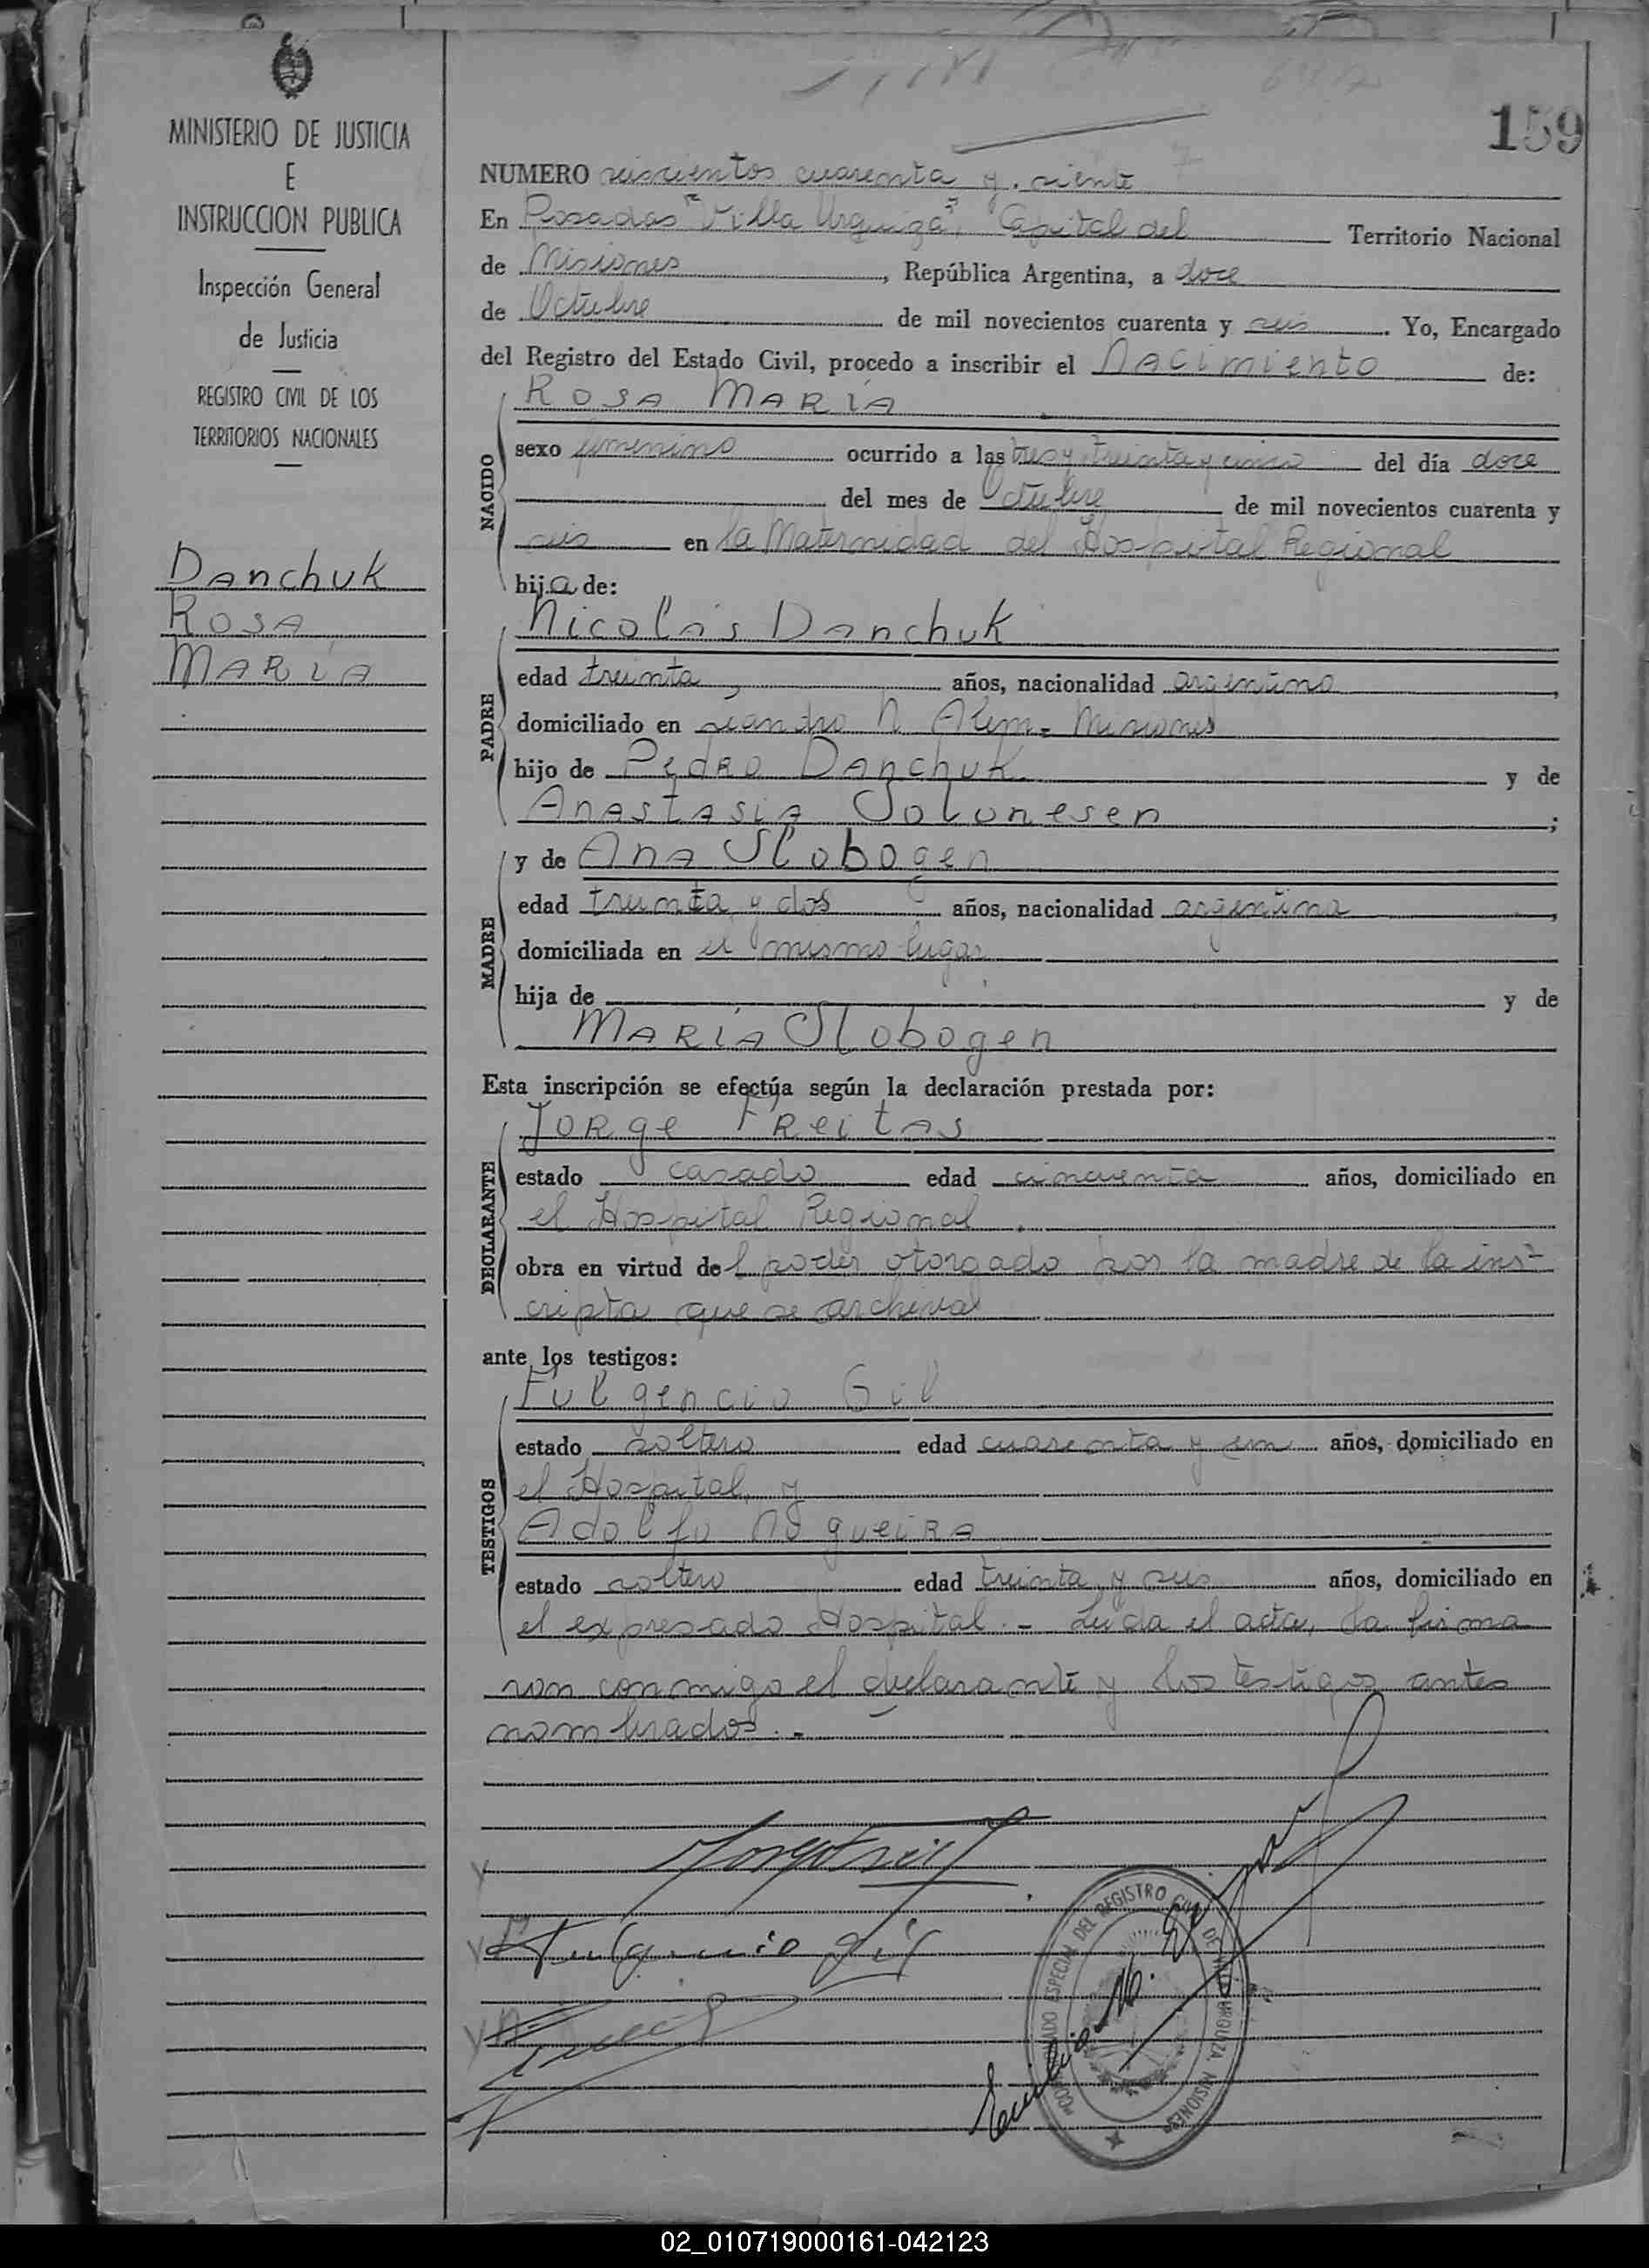 MINISTERIO DE JUSTICIA
E
INSTRUCCION PUBLICA
Inspección General
de Justicia
REGISTRO CIVIL DE LOS
TERRITORIOS NACIONALES
Danchuk
Rosa
María
159
NUMERO seiscientos cuarenta y siente 7
En Posadas "Villa Urquiza", Capital del Territorio Nacional
de Misiones, República Argentina, a doce
de Octubre de mil novecientos cuarenta y seis. Yo, Encargado
del Registro del Estado Civil, procedo a inscribir el Nacimiento de:
Rosa María
NACIDO
sexo femenino ocurrido a las tres y treinta y cinco del día doce
del mes de Octubre de mil novecientos cuarenta y
seis en la Maternidad del Hospital Regional
hija de:
Nicolás Danchuk
PADRE
edad treinta, años, nacionalidad argentino,
domiciliado en Leandro N. Alem - Misiones
hijo de Pedro Danchuk y de
Anastasia Solonesen;
y de Ana Slobogen
MADRE
edad treinta y dos años, nacionalidad argentina,
domiciliada en el mismo lugar,
hija de y de
María Slobogen
Esta inscripción se efectúa según la declaración prestada por:
Jorge Freitas
DECLARANTE
estado casado edad cincuenta años, domiciliado en
el Hospital Regional.
obra en virtud del poder otorgado por la madre de la ins-
cripta que se archiva
ante los testigos:
Fulgencio Gil
TESTIGOS
estado soltero edad cuarenta y un años, domiciliado en
el Hospital, y
Adolfo Nogueira
estado soltero edad treinta y seis años, domiciliado en
el expresado Hospital. - Leída el acta, la firma
ron conmigo el declarante y los testigos antes
nombrados. -
Fulgencio Gil
ESPECIAL DEL REGISTRO CIVIL DE VILLA URQUIZA MISIONES
02_010719000161-042123